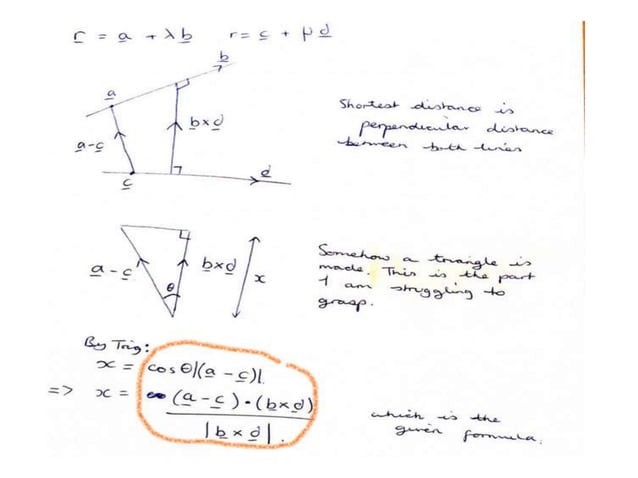 r = a + λb r = c + μd
b
a
b×d
a-c
c
d
Shortest distance is
perpendicular distance
between both lines
a - c
θ
b×d
x
Somehow a triangle is
made. This is the part
I am struggling to
grasp.
By Trig:
x = cosθ|(a - c)|.
=> x = (a - c)·(b×d)
|b × d|.
which is the
given formula.